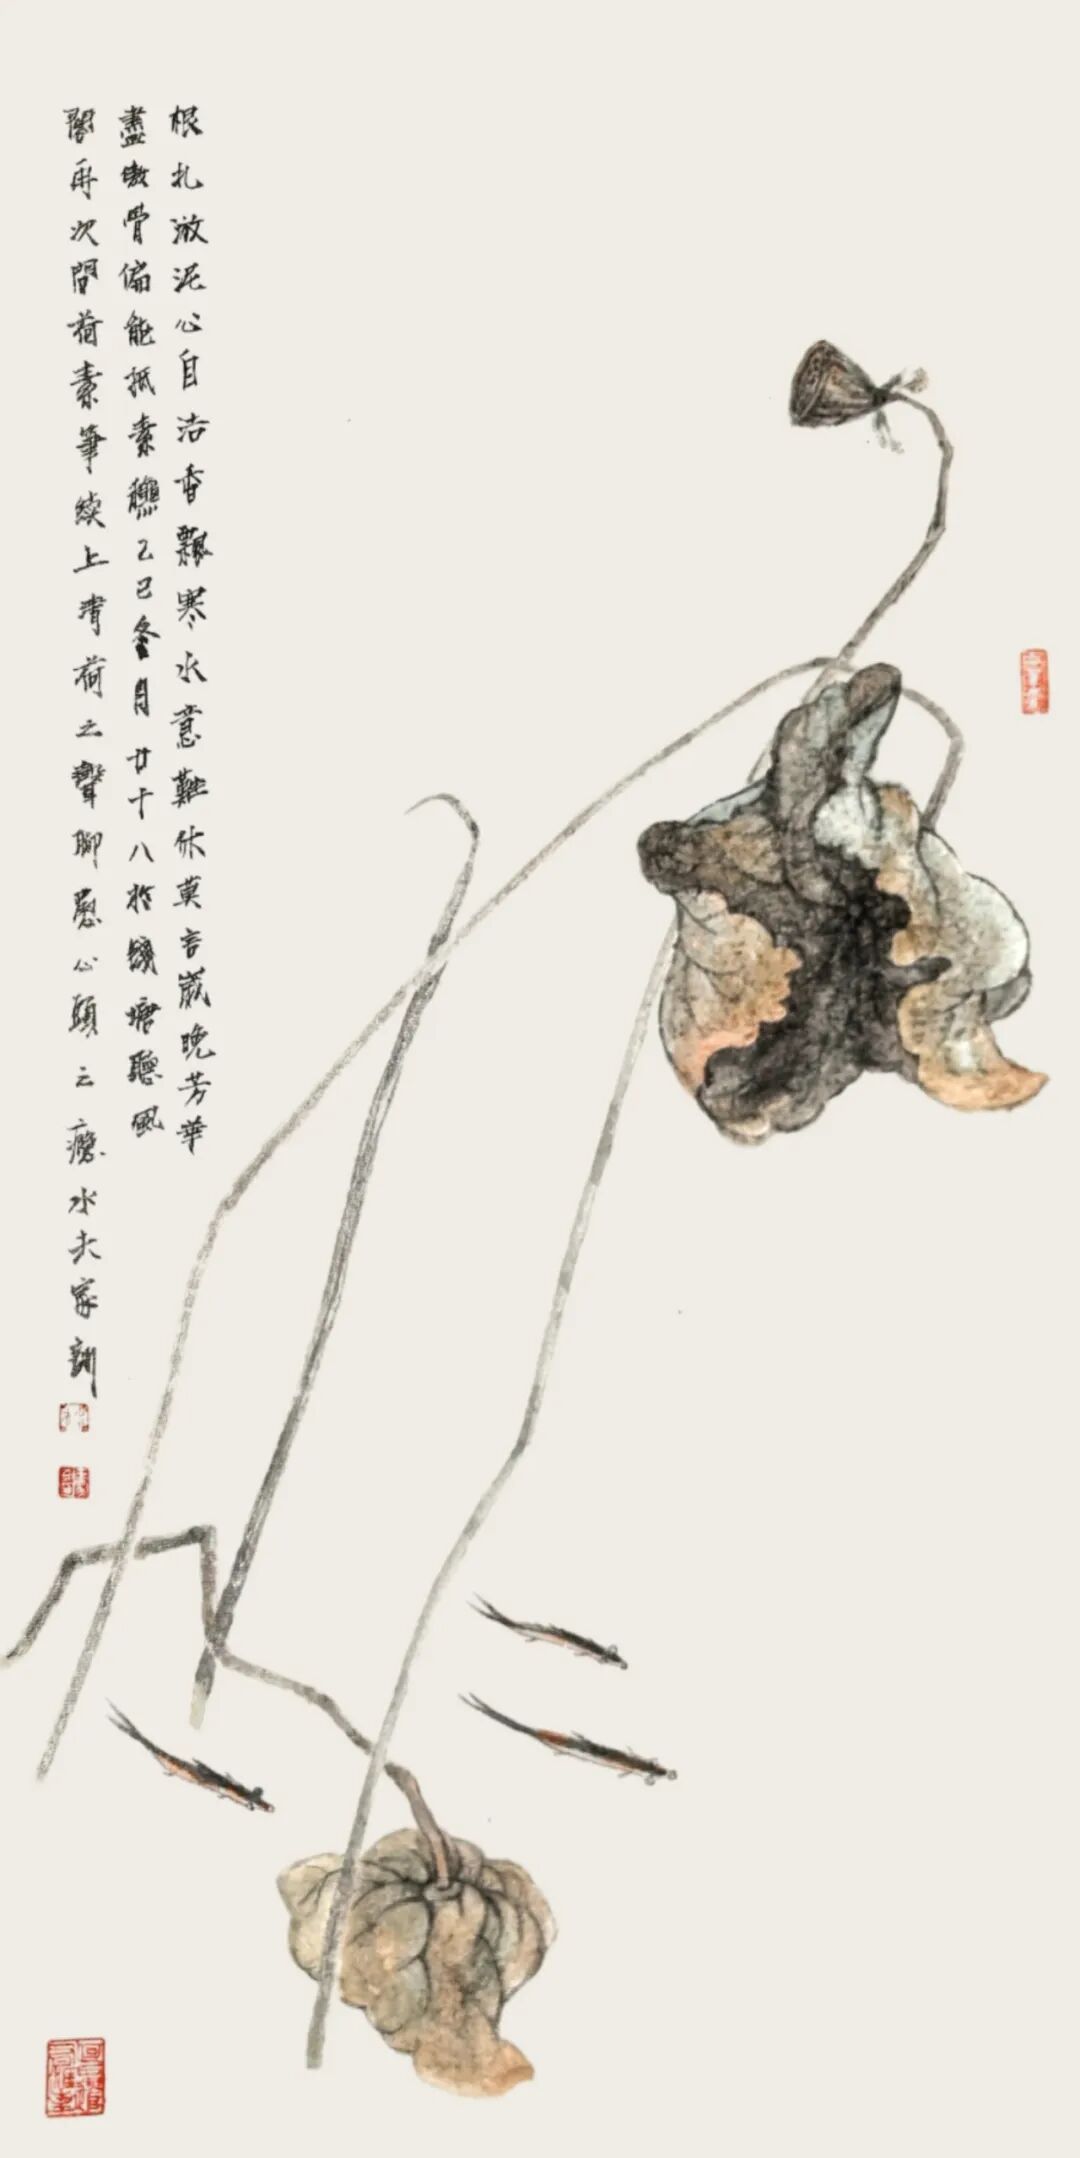 根扎淤泥心自洁香飄寒水意難休莫言嵗晚芳華
盡傲骨偏能抵素穐乙巳冬月廿十八於錢塘聽風
閣再次間荷素筆續上清荷之聲聊慰心頭之癮水夫家訓